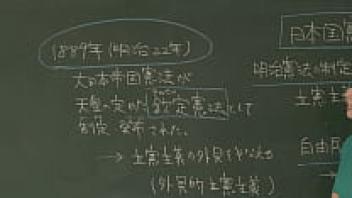 1889年(明治22年)
大日本帝国憲法が
天皇の定めた欽定憲法として
制定・発布された。
→ 立憲主義の外見を
(外見的立憲主義)
日本国憲
明治憲法の制定
立憲主
自由民